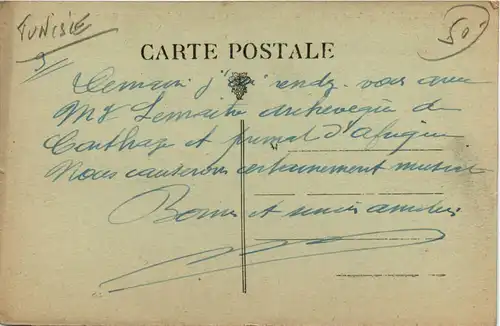 TUNISIE
50
CARTE POSTALE
Demain j'ai rendz. vous avec
Mgr Lemaitre archevêque de
Carthage et primat d'afrique
Nous causerons certainement
Bons et amitiés